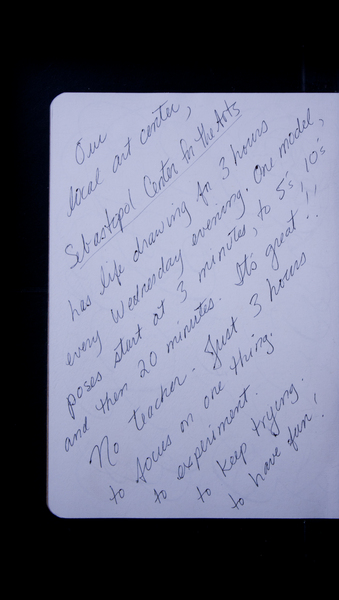 Our
local art center,
Sebastopol Center for the Arts
has life drawing for 3 hours
every Wednesday evening. One model,
poses start at 3 minutes, to 5's, 10's
and then 20 minutes. It's great!!
No teacher. Just 3 hours
to focus on one thing.
to experiment.
to keep trying.
to have fun!